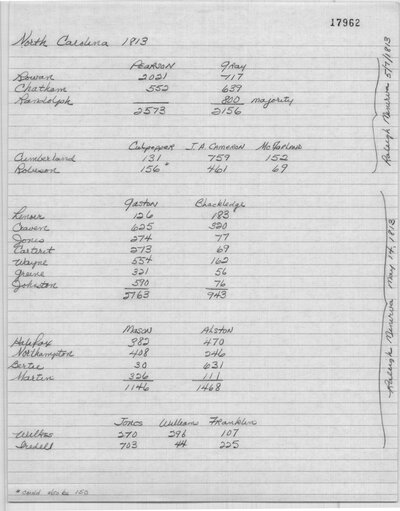 17962
North Carolina 1813
PEARSON Gray
Rowan 2021 717
Chatham 552 639
Randolph 800 majority
2573 2156
Raleigh Minerva 5/7/1813
Culpepper J.A. Cameron McFarland
Cumberland 131 759 152
Robeson 156* 461 69
Gaston Chackledge
Lenoir 126 183
Craven 625 320
Jones 274 77
Carteret 273 69
Wayne 554 162
Greene 321 56
Johnston 590 76
2763 943
Mason Alston
Halifax 382 470
Northampton 408 246
Bertie 30 631
Martin 326 111
1146 1468
Raleigh Minerva May 14, 1813
Jones Williams Franklin
Wilkes 270 296 107
Iredell 703 44 225
* could also be 150